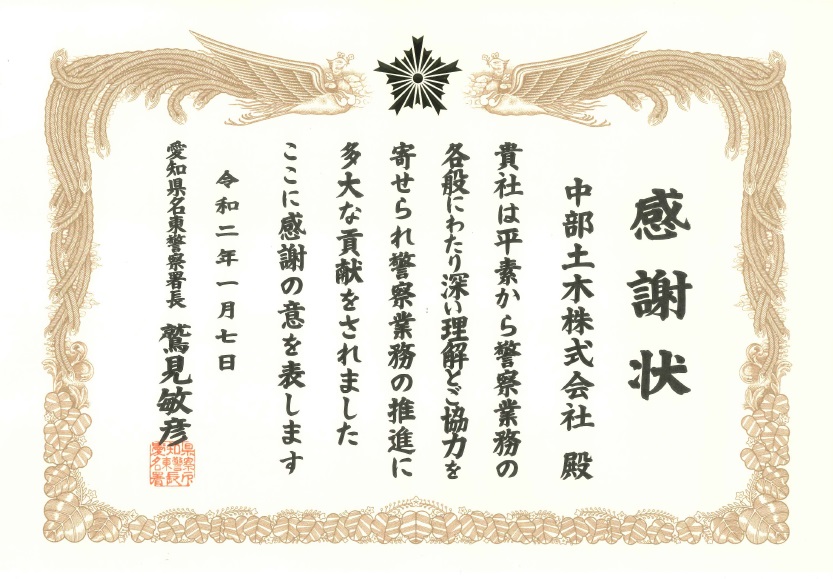 感謝状
中部土木株式会社 殿
貴社は平素から警察業務の
各般にわたり深い理解とご協力を
寄せられ警察業務の推進に
多大な貢献をされました
ここに感謝の意を表します
令和二年一月七日
愛知県名東警察署長 鷲見敏彦